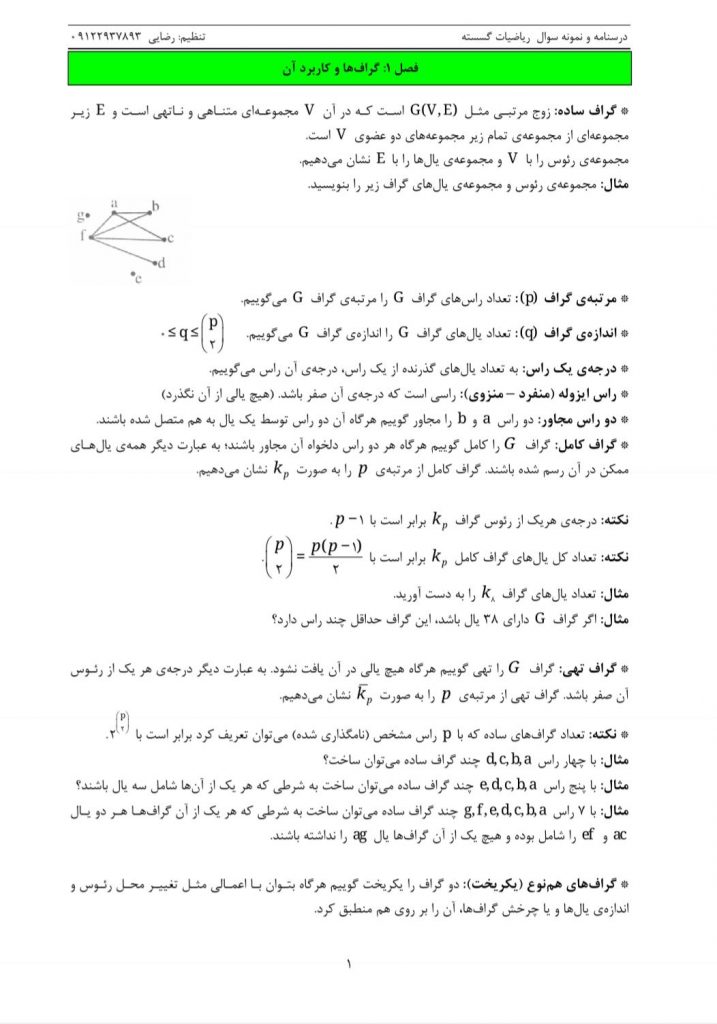 درسنامه و نمونه سوال ریاضیات گسسته
تنظیم: رضایی ۰۹۱۲۲۹۳۷۸۹۳
فصل ۱: گراف‌ها و کاربرد آن
* گراف ساده: زوج مرتبی مثل G(V,E) است که در آن V مجموعه‌ای متناهی و ناتهی است و E زیر
مجموعه‌ای از مجموعه‌ی تمام زیر مجموعه‌های دو عضوی V است.
مجموعه‌ی رئوس را با V و مجموعه‌ی یال‌ها را با E نشان می‌دهیم.
مثال: مجموعه‌ی رئوس و مجموعه‌ی یال‌های گراف زیر را بنویسید.
a b
g
f c
d
c
* مرتبه‌ی گراف (p): تعداد راس‌های گراف G را مرتبه‌ی گراف G می‌گوییم.
* اندازه‌ی گراف (q): تعداد یال‌های گراف G را اندازه‌ی گراف G می‌گوییم. ۰ ≤ q ≤ (p ۲)
* درجه‌ی یک راس: به تعداد یال‌های گذرنده از یک راس، درجه‌ی آن راس می‌گوییم.
* راس ایزوله (منفرد – منزوی): راسی است که درجه‌ی آن صفر باشد. (هیچ یالی از آن نگذرد)
* دو راس مجاور: دو راس a و b را مجاور گوییم هرگاه آن دو راس توسط یک یال به هم متصل شده باشند.
* گراف کامل: گراف G را کامل گوییم هرگاه هر دو راس دلخواه آن مجاور باشند؛ به عبارت دیگر همه‌ی یال‌های
ممکن در آن رسم شده باشند. گراف کامل از مرتبه‌ی p را به صورت kₚ نشان می‌دهیم.
نکته: درجه‌ی هریک از رئوس گراف kₚ برابر است با p − ۱ .
نکته: تعداد کل یال‌های گراف کامل kₚ برابر است با (p ۲) = p(p − ۱)/۲ .
مثال: تعداد یال‌های گراف k۸ را به دست آورید.
مثال: اگر گراف G دارای ۳۸ یال باشد، این گراف حداقل چند راس دارد؟
* گراف تهی: گراف G را تهی گوییم هرگاه هیچ یالی در آن یافت نشود. به عبارت دیگر درجه‌ی هر یک از رئوس
آن صفر باشد. گراف تهی از مرتبه‌ی p را به صورت k̄ₚ نشان می‌دهیم.
* نکته: تعداد گراف‌های ساده که با p راس مشخص (نامگذاری شده) می‌توان تعریف کرد برابر است با ۲^(p ۲).
مثال: با چهار راس d,c,b,a چند گراف ساده می‌توان ساخت؟
مثال: با پنج راس e,d,c,b,a چند گراف ساده می‌توان ساخت به شرطی که هر یک از آن‌ها شامل سه یال باشند؟
مثال: با ۷ راس g,f,e,d,c,b,a چند گراف ساده می‌توان ساخت به شرطی که هر یک از آن گراف‌ها هر دو یال
ac و ef را شامل بوده و هیچ یک از آن گراف‌ها یال ag را نداشته باشند.
* گراف‌های هم‌نوع (یکریخت): دو گراف را یکریخت گوییم هرگاه بتوان با اعمالی مثل تغییر محل رئوس و
اندازه‌ی یال‌ها و یا چرخش گراف‌ها، آن را بر روی هم منطبق کرد.
۱